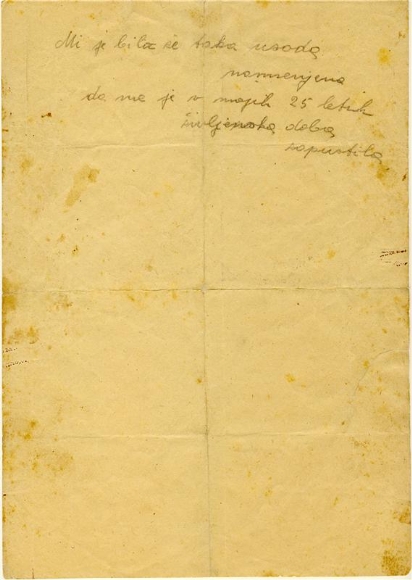 Mi je bila že taka usoda
namenjena
da me je v mojih 25 letih
življenska doba
zapustila